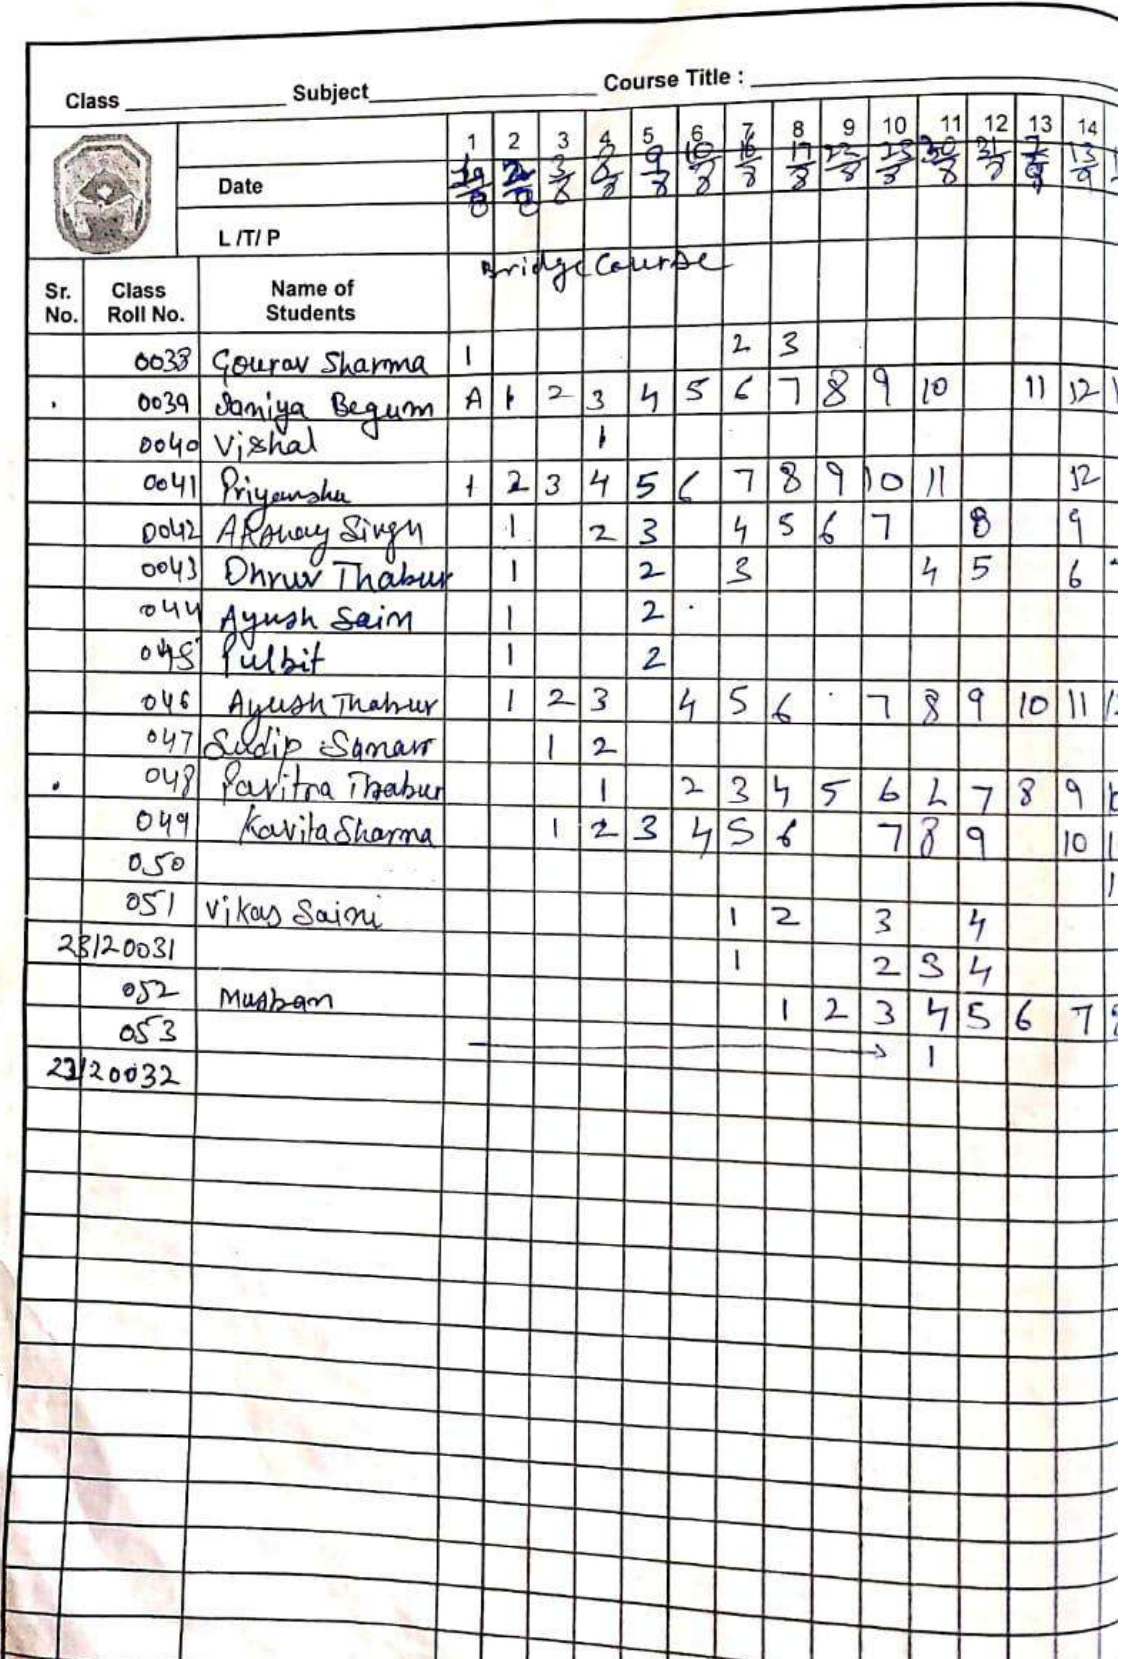 Class Subject Course Title :
1 2 3 4 5 6 7 8 9 10 11 12 13 14
Date 3/8 8/8 9/8 10/8 16/8 17/8 23/8 31/8 13/9
L /T/ P
Bridge Course
Sr. No. Class Roll No. Name of Students
0038 Gourav Sharma 1 2 3
0039 Saniya Begum A 1 2 3 4 5 6 7 8 9 10 11 12
0040 Vishal 1
0041 Priyanshu 1 2 3 4 5 6 7 8 9 10 11 12
0042 Singh 1 2 3 4 5 6 7 8 9
0043 Dhruv Thakur 1 2 3 4 5 6
044 Ayush Saini 1 2
045 Pulkit 1 2
046 Ayush Thakur 1 2 3 4 5 6 7 8 9 10 11
047 Sudip 1 2
048 Pavitra Thakur 1 2 3 4 5 6 L 7 8 9
049 Kavita Sharma 1 2 3 4 5 6 7 8 9 10
050
051 Vikas Saini 1 2 3 4
23/20031 1 2 3 4
052 Muskan 1 2 3 4 5 6 7
053 1
23/20032